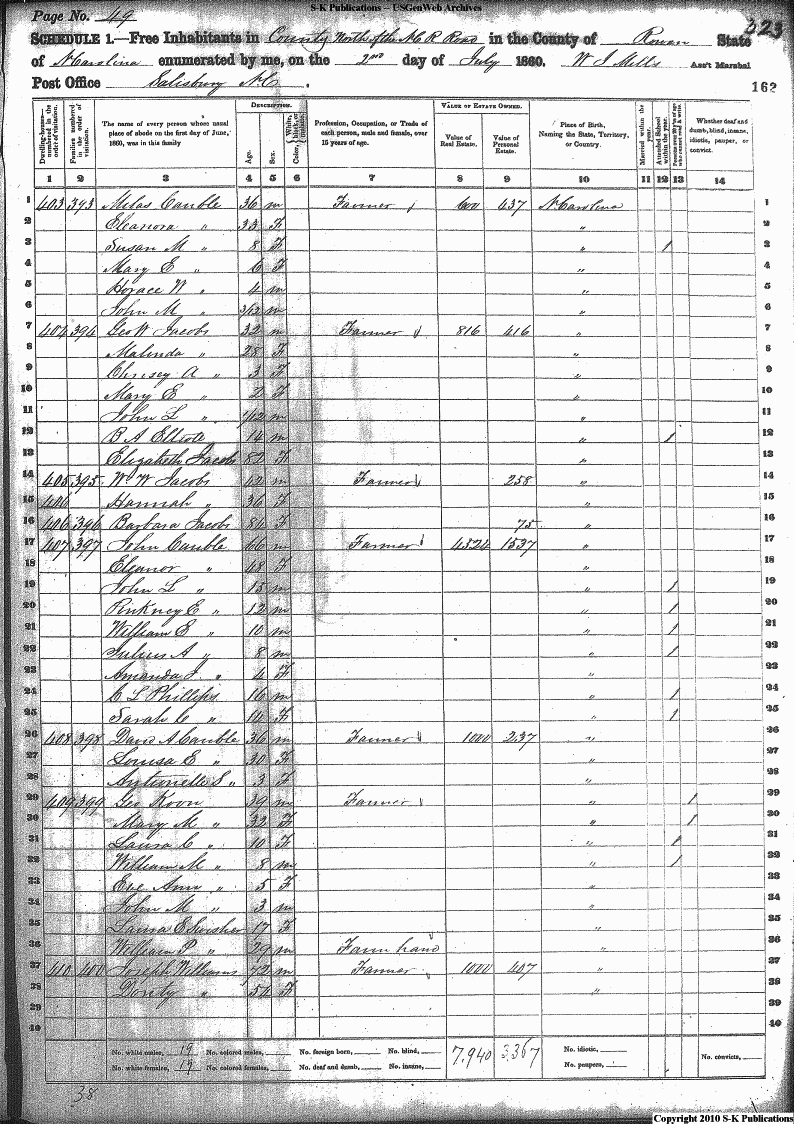 S-K Publications -- USGenWeb Archives
Page No. 49
323
SCHEDULE 1.—Free Inhabitants in County North of the N C R Road in the County of Rowan State
of N Carolina enumerated by me, on the 2nd day of July 1860. W J Mills Ass't Marshal
Post Office Salisbury N C.
162
Dwelling-houses numbered in the order of visitation. Families numbered in the order of visitation. The name of every person whose usual place of abode on the first day of June, 1860, was in this family DESCRIPTION. Age. Sex. Color, White, black, or mulatto. Profession, Occupation, or Trade of each person, male and female, over 15 years of age. VALUE OF ESTATE OWNED. Value of Real Estate. Value of Personal Estate. Place of Birth, Naming the State, Territory, or Country. Married within the year. Attended School within the year. Persons over 20 y'rs of age who cannot read & write. Whether deaf and dumb, blind, insane, idiotic, pauper, or convict.
1 2 3 4 5 6 7 8 9 10 11 12 13 14
1 403 393 Milas Cauble 36 m Farmer 600 437 N Carolina 1
2 Eleanora " 33 F " 2
3 Susan M " 8 F " / 3
4 Mary E " 6 F " 4
5 Horace W " 4 m " 5
6 John M " 3/12 m " 6
7 404 394 Geo W Jacobs 32 m Farmer 816 416 " 7
8 Malinda " 28 F " 8
9 Chrisey A " 3 F " 9
10 Mary E " 2 F " 10
11 John L " 1/12 m " 11
12 B A Elliott 14 m " / 12
13 Elizabeth Jacobs 82 F " 13
14 405 395 W W Jacobs 42 m Farmer 258 " 14
15 406 Hannah " 36 F " 15
16 406 396 Barbara Jacobs 84 F 75 " 16
17 407 397 John Cauble 66 m Farmer 4524 1537 " 17
18 Eleanor " 48 F " 18
19 John L " 15 m " / 19
20 Pinkney E " 12 m " / 20
21 William E " 10 m " / 21
22 Julius A " 8 m " / 22
23 Amanda J. " 4 F " 23
24 C L Phillips 16 m " / 24
25 Sarah C " 14 F " / 25
26 408 398 David A Cauble 36 m Farmer 1000 237 " 26
27 Louisa E " 30 F " 27
28 Antionette S " 3 F " 28
29 409 399 Geo Koon 39 m Farmer " / 29
30 Mary M " 32 F " / 30
31 Laura C " 10 F " / 31
32 William M " 8 m " / 32
33 Eve Ann " 5 F " 33
34 John M " 3 m " 34
35 Laura E Swisher 17 F " 35
36 William P " 29 m Farm hand " 36
37 410 400 Joseph Williams 72 m Farmer 1000 407 " 37
38 Dority " 54 F " 38
39 39
40 40
No. white males, 19 No. colored males, No. foreign born, No. blind, 7,940 3,367 No. idiotic, No. convicts,
No. white females, 19 No. colored females, No. deaf and dumb, No. insane, No. paupers,
38
Copyright 2010 S-K Publications